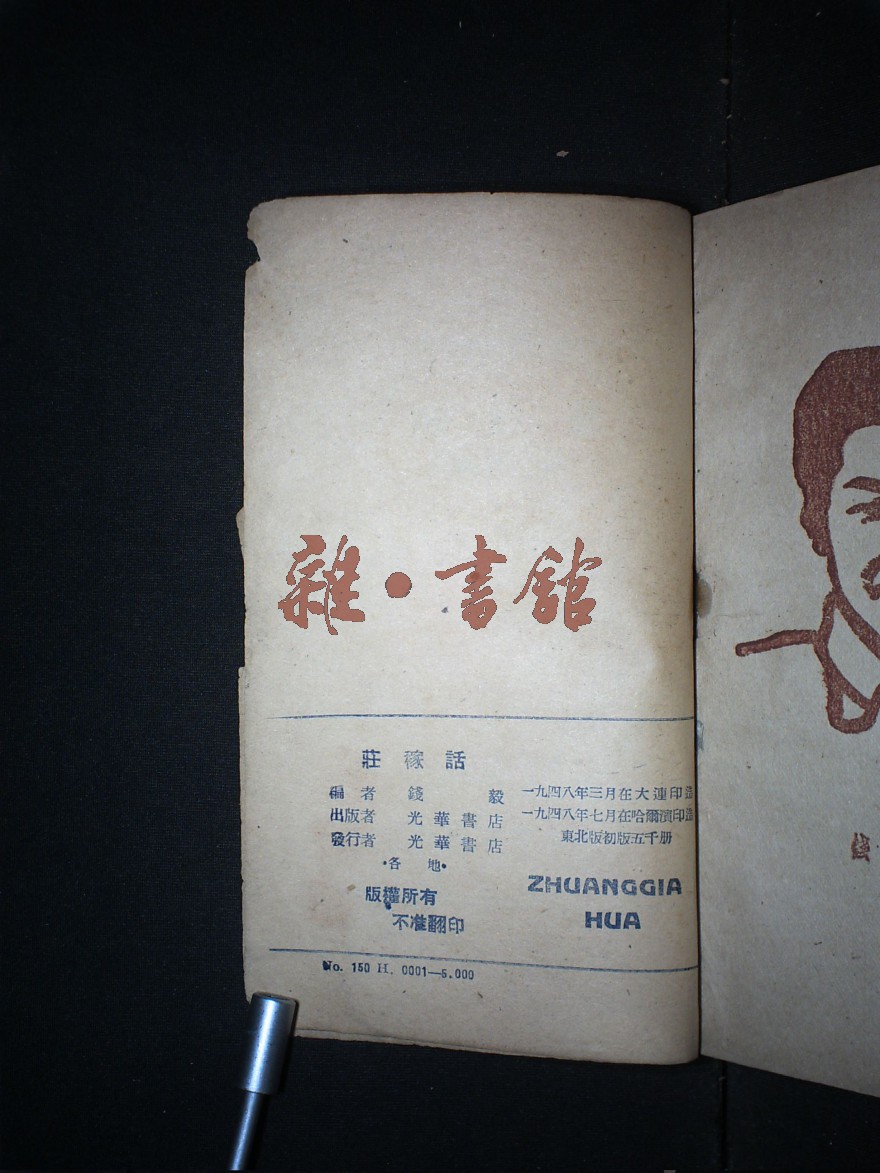 雜·書舘
莊稼話
編者 錢毅
出版者 光華書店
發行者 光華書店
·各地·
版權所有
不准翻印
一九四八年三月在大連印造
一九四八年七月在哈爾濱印造
東北版初版五千册
ZHUANGGIA
HUA
No. 150 H. 0001—5.000